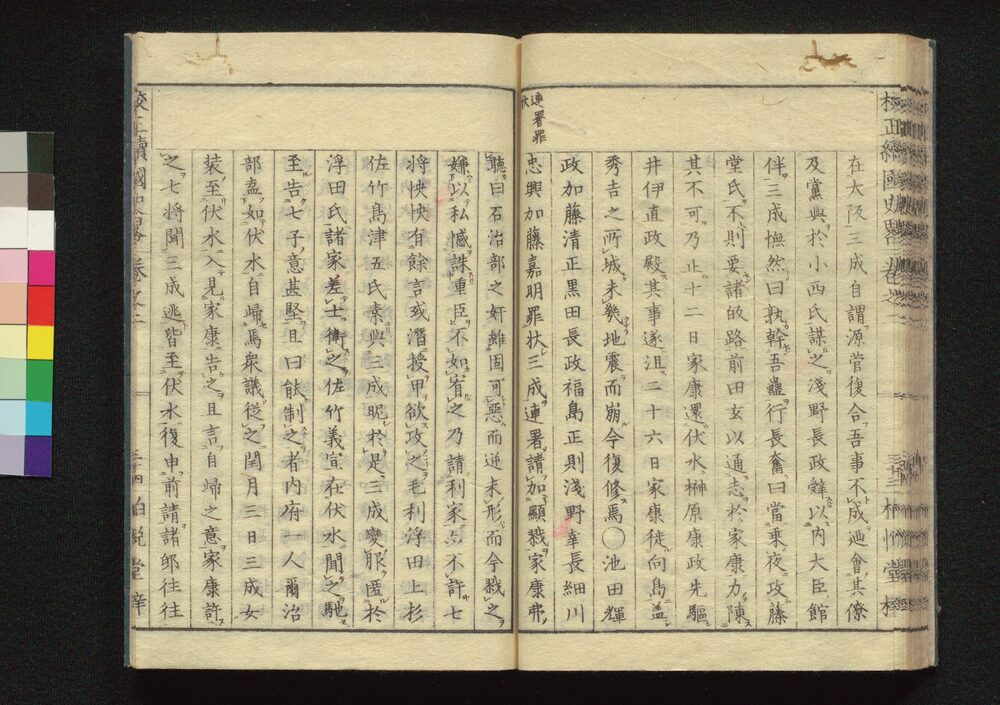 校正續國史畧卷之二
三十三 柏悅堂梓
在大阪三成自謂源當復合吾事不成迺會其僚
及黨與於小西氏謀之淺野長政辭以内大臣館
伴三成憮然曰孰幹吾蠱行長奮曰當乘夜攻藤
堂氏不則要諸的路前田玄以通志於家康力陳
其不可乃止十二日家康還伏水榊原康政先驅
井伊直政殿其事遂沮二十六日家康徙向島蓋
秀吉之所城未幾地震而崩今復修焉〇池田輝
政加藤清正黒田長政福島正則淺野幸長細川
連署罪
狀
忠興加藤嘉明罪狀三成連署請加顯戮家康弗
聽曰石治部之奸雖固可惡而逆未形而今戮之
嫌以私憾誅重臣不如宥之乃請利家亦不許七
將怏怏有餘言或潛授甲欲攻之毛利浮田上杉
佐竹島津五氏素與三成昵於是三成變服匿於
浮田氏諸家差士衛之佐竹義宣在伏水聞之馳
至告七子意甚堅且曰能制之者内府一人爾治
部盍如伏水自歸焉衆議從之閏月三日三成女
装至伏水入見家康告之且言自歸之意家康許
之七將聞三成逃皆至伏水復申前請諸邸往往
校正續國史畧卷之二
三十四 柏悅堂梓